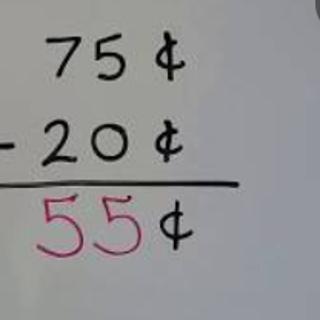 75¢
- 20¢
55¢